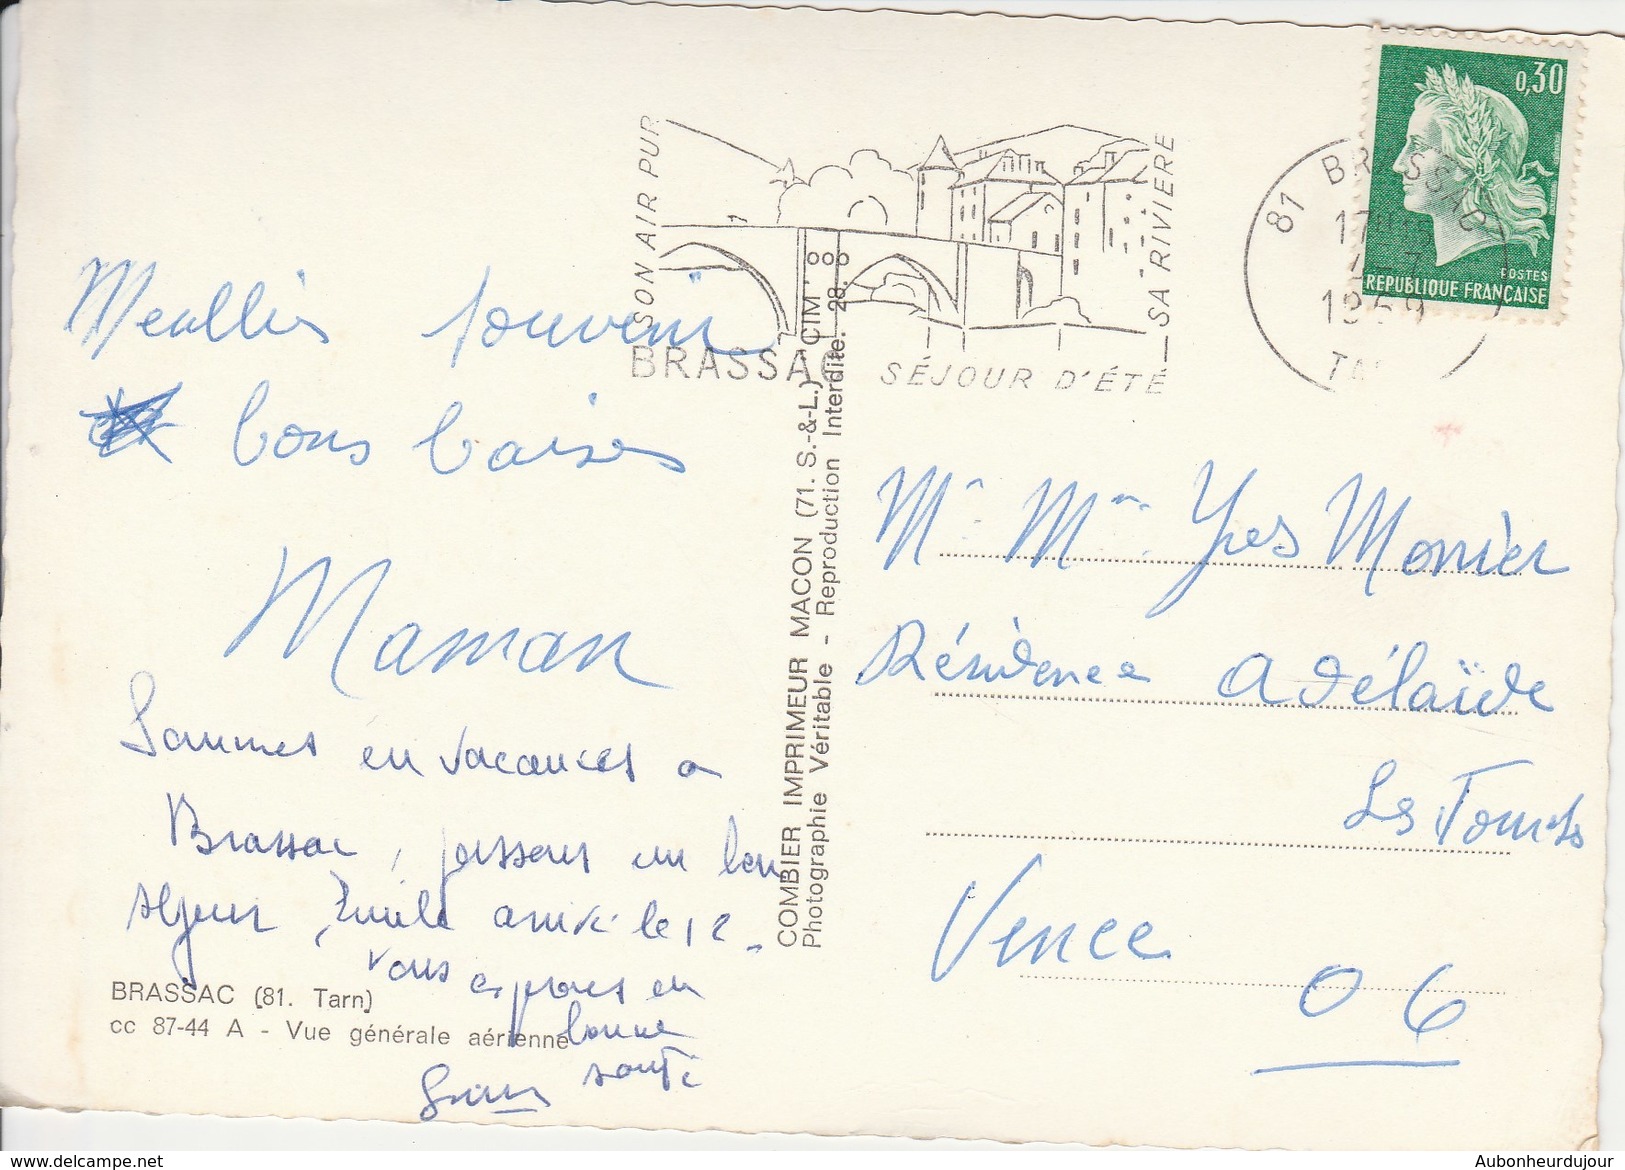 SON AIR PUR
BRASSAC
SÉJOUR D'ÉTÉ
SA RIVIERE
81 BRASSAC
17H
7
1969
0,30
POSTES
REPUBLIQUE FRANÇAISE
Meilliers souvenir
bons baises
Maman
Sommes en vacances a
Brassac, passons un bon
séjour, Emile arrive le 12.
Vous espérons en
bonne
santé
BRASSAC (81. Tarn)
cc 87-44 A - Vue générale aérienne
COMBIER IMPRIMEUR MACON (71. S.-&-L.) "CIM"
Photographie Véritable - Reproduction Interdite. 28.
Mr Mme Yves Monier
Résidence Adélaïde
Vence
06
Aubonheurdujour
www.delcampe.net